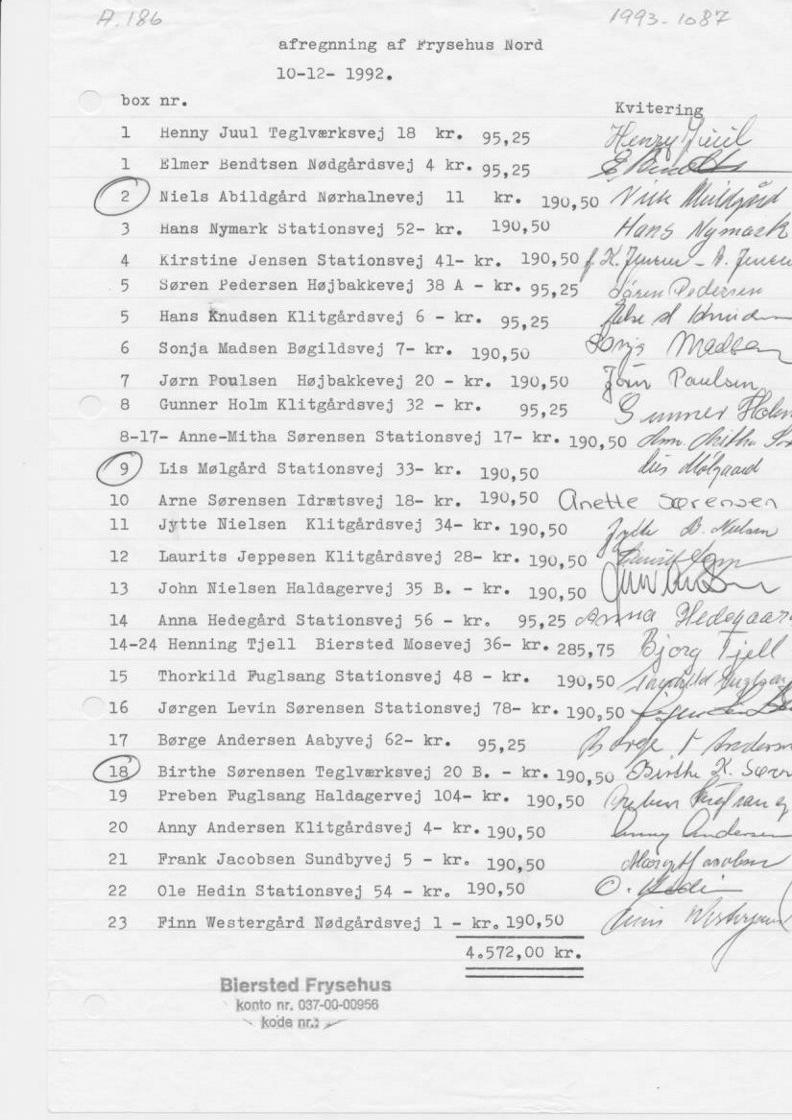 A. 186 1993-1087
afregnning af Frysehus Nord
10-12- 1992.
box nr. Kvitering
1 Henny Juul Teglværksvej 18 kr. 95,25 Henny Juul
1 Elmer Bendtsen Nødgårdsvej 4 kr. 95,25
2 Niels Abildgård Nørhalnevej 11 kr. 190,50
3 Hans Nymark Stationsvej 52- kr. 190,50 Hans Nymark
4 Kirstine Jensen Stationsvej 41- kr. 190,50
5 Søren Pedersen Højbakkevej 38 A - kr. 95,25 Søren Pedersen
5 Hans Knudsen Klitgårdsvej 6 - kr. 95,25
6 Sonja Madsen Bøgildsvej 7- kr. 190,50 Sonja Madsen
7 Jørn Poulsen Højbakkevej 20 - kr. 190,50 Jørn Poulsen
8 Gunner Holm Klitgårdsvej 32 - kr. 95,25 Gunner Holm
8-17- Anne-Mitha Sørensen Stationsvej 17- kr. 190,50
9 Lis Mølgård Stationsvej 33- kr. 190,50 Lis Mølgaard
10 Arne Sørensen Idrætsvej 18- kr. 190,50 Anette Sørensen
11 Jytte Nielsen Klitgårdsvej 34- kr. 190,50 Jytte B. Nielsen
12 Laurits Jeppesen Klitgårdsvej 28- kr. 190,50
13 John Nielsen Haldagervej 35 B. - kr. 190,50
14 Anna Hedegård Stationsvej 56 - kr. 95,25 Anna Hedegaard
14-24 Henning Tjell Biersted Mosevej 36- kr. 285,75 Bjorg Tjell
15 Thorkild Fuglsang Stationsvej 48 - kr. 190,50
16 Jørgen Levin Sørensen Stationsvej 78- kr. 190,50
17 Børge Andersen Aabyvej 62- kr. 95,25
18 Birthe Sørensen Teglværksvej 20 B. - kr. 190,50 Birthe K. Søren
19 Preben Fuglsang Haldagervej 104- kr. 190,50 Preben Fuglsang
20 Anny Andersen Klitgårdsvej 4- kr. 190,50 Anny Andersen
21 Frank Jacobsen Sundbyvej 5 - kr. 190,50
22 Ole Hedin Stationsvej 54 - kr. 190,50 O. Hedin
23 Finn Westergård Nødgårdsvej 1 - kr. 190,50
4.572,00 kr.
Biersted Frysehus
konto nr. 037-00-00956
kode nr.: